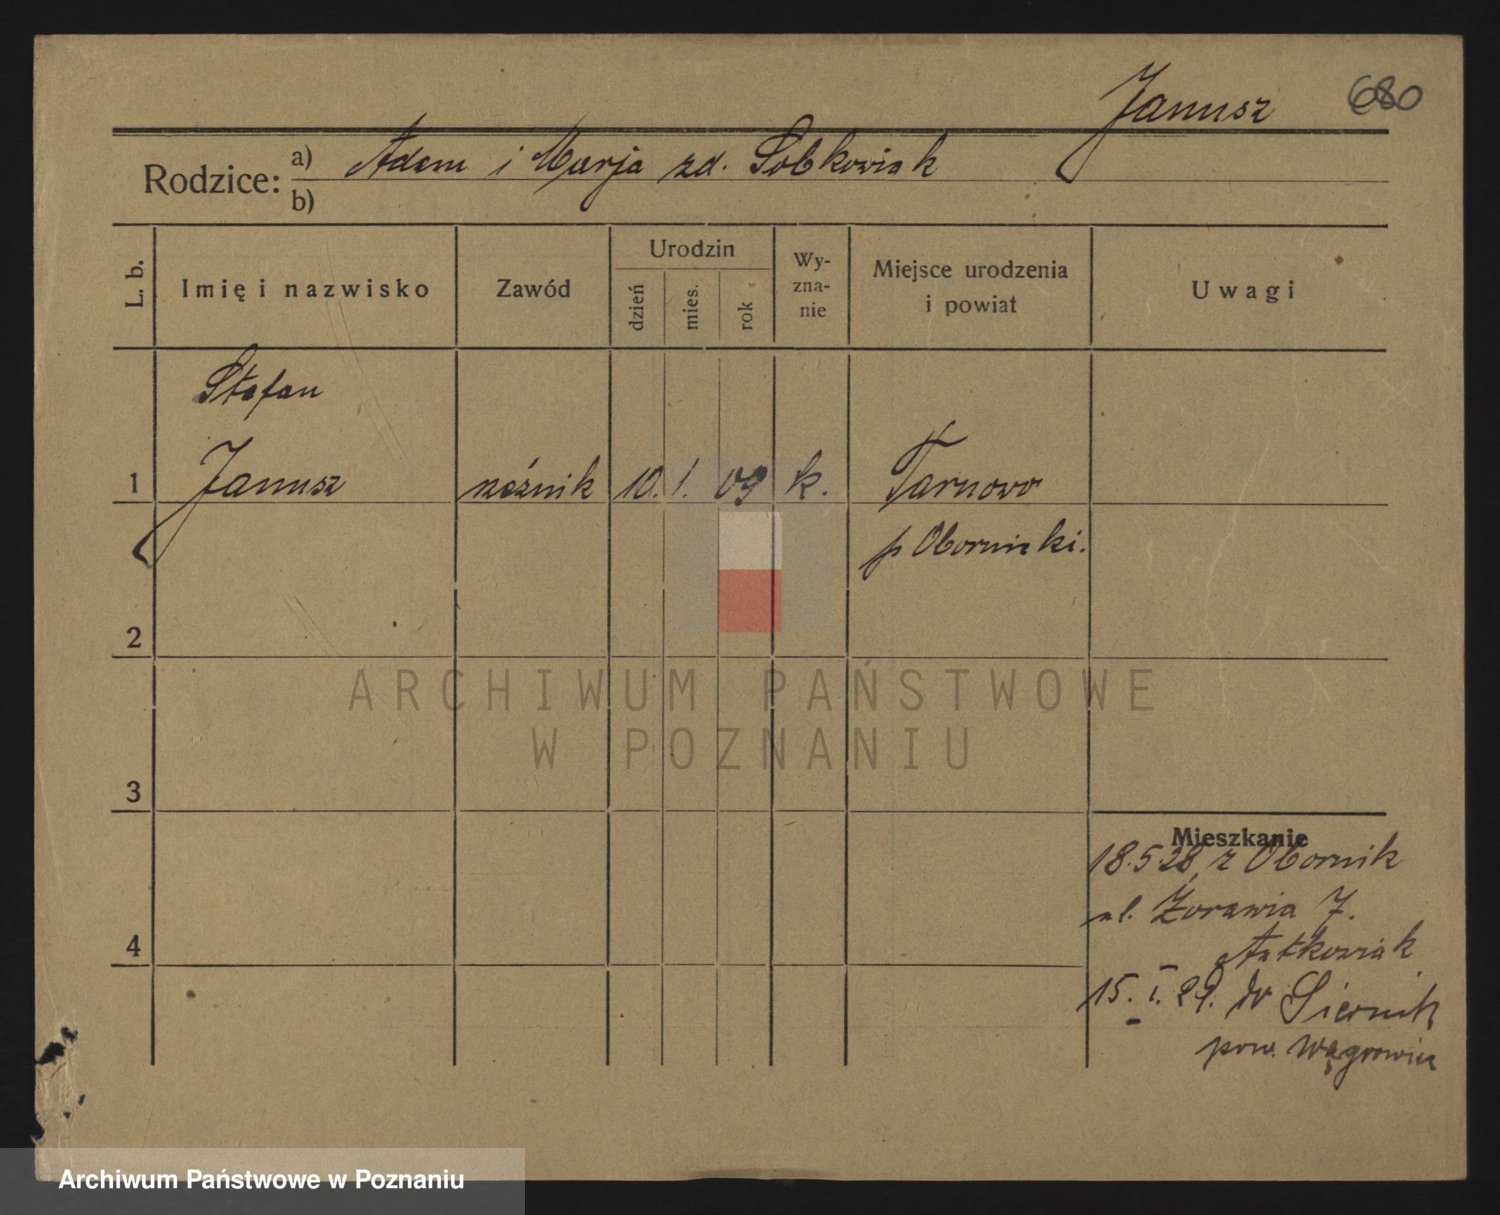 Janusz 680
Rodzice: a) Adam i Marja zd. Sobkowiak
b)
L. b.
Imię i nazwisko
Zawód
Urodzin
dzień
mies.
rok
Wy-
zna-
nie
Miejsce urodzenia
i powiat
Uwagi
Stefan
1 Janusz rzeźnik 10. 1. 09 k. Tarnowo
p Oborniki.
2
ARCHIWUM PAŃSTWOWE
W POZNANIU
3
Mieszkanie
18.5 28 z Obornik
ul. Żorawia 7.
4 Antkowiak
15. I. 29. do Siernik
pow. Wągrowiec
Archiwum Państwowe w Poznaniu